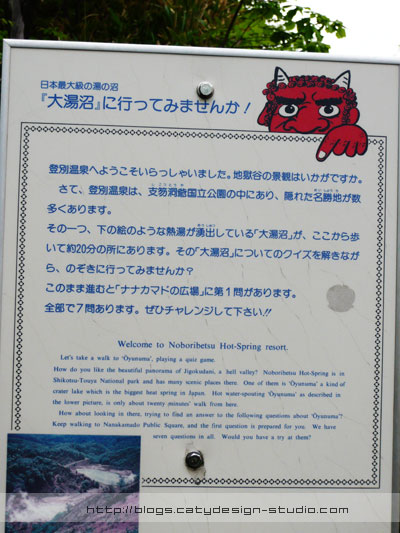 日本最大級の湯の沼
『大湯沼』に行ってみませんか！
登別温泉へようこそいらっしゃいました。地獄谷の景観はいかがですか。
さて、登別温泉は、支笏洞爺国立公園の中にあり、隠れた名勝地が数
多くあります。
その一つ、下の絵のような熱湯が湧出している「大湯沼」が、ここから歩
いて約20分の所にあります。その「大湯沼」についてのクイズを解きなが
ら、のぞきに行ってみませんか？
このまま進むと「ナナカマドの広場」に第1問があります。
全部で7問あります。ぜひチャレンジして下さい!!
Welcome to Noboribetsu Hot-Spring resort.
Let's take a walk to 'Ōyunuma', playing a quiz game.
How do you like the beautiful panorama of Jigokudani, a hell valley? Noboribetsu Hot-Spring is in
Shikotsu-Touya National park and has many scenic places there. One of them is 'Ōyunuma' a kind of
crater lake which is the biggest heat spring in Japan. Hot water-spouting 'Ōyunuma' as described in
the lower picture, is only about twenty minutes' walk from here.
How about looking in there, trying to find an answer to the following questions about 'Ōyunuma'?
Keep walking to Nanakamado Public Square, and the first question is prepared for you. We have
seven questions in all. Would you have a try at them?
http://blogs.catydesign-studio.com